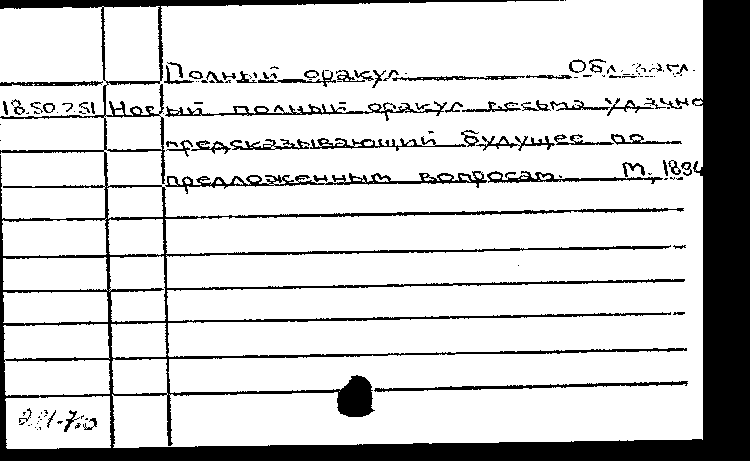 Полный оракул. Обл. загл.
18.50.7.51 Новый полный оракул весьма удачно
предсказывающий будущее по
предложенным вопросам. М., 1894